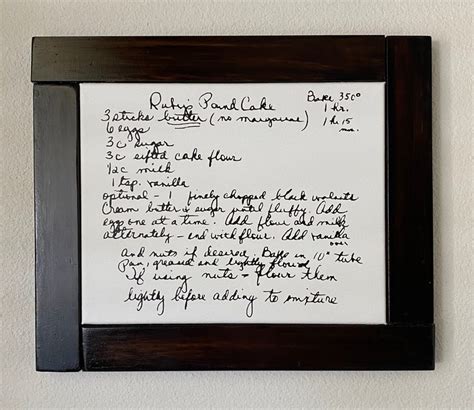 Ruby's Pound Cake
Bake 350°
1 hr.
1 hr 15
mn.
3 sticks butter (no margarine)
6 eggs
3c sugar
3c sifted cake flour
1/2c milk
1 tsp. vanilla
optional - 1 finely chopped black walnuts
Cream butter & sugar until fluffy. Add
eggs one at a time. Add flour and milk
alternately - end with flour. Add vanilla
and nuts if desired. Bake in 10" tube
pan, greased and lightly floured
If using nuts - flour them
lightly before adding to